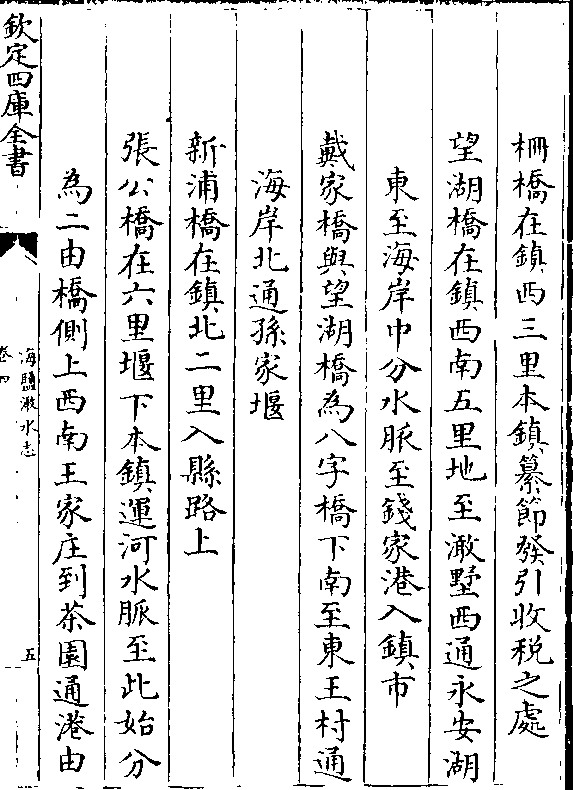 柵橋在鎮西三里本鎮纂節發引收税之處
望湖橋在鎮西南五里地至澉墅西通永安湖
東至海岸中分水脈至錢家港入鎮市
戴家橋與望湖橋為八字橋下南至東王村通
海岸北通孫家堰
新浦橋在鎮北二里入縣路上
張公橋在六里堰下本鎮運河水脈至此始分
為二由橋側上西南王家庄到茶園通港由
欽定四庫全書
海鹽澉水志
卷四
五